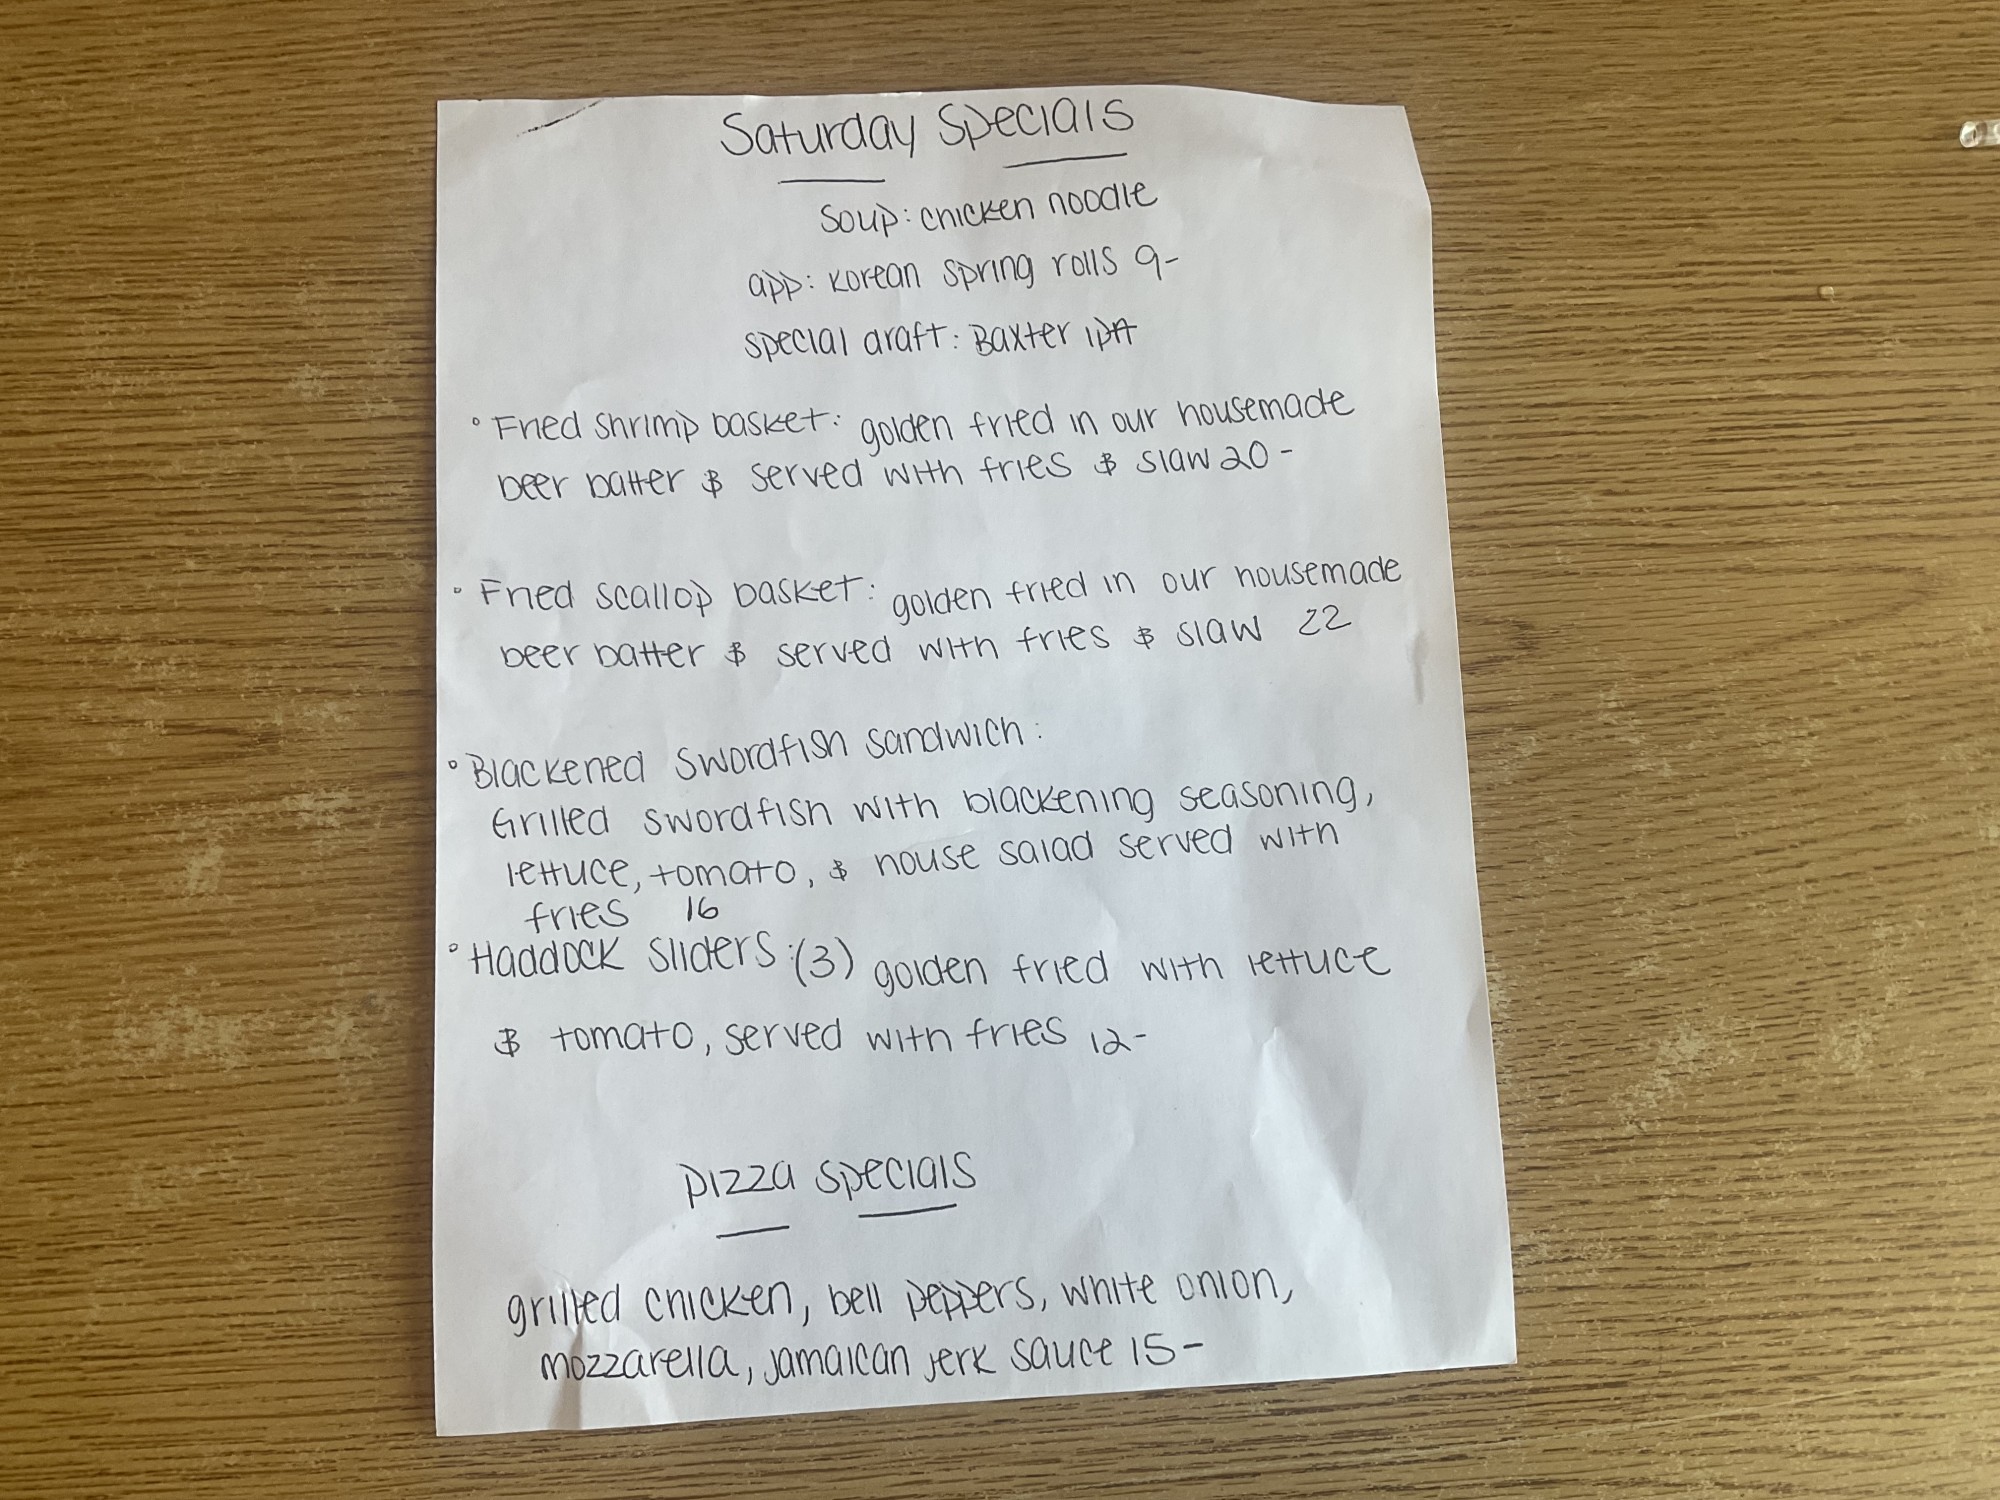 Saturday Specials
Soup: chicken noodle
app: Korean spring rolls 9-
special draft: Baxter IPA
° Fried shrimp basket: golden fried in our housemade
beer batter & served with fries & slaw 20-
° Fried scallop basket: golden fried in our housemade
beer batter & served with fries & slaw 22
° Blackened swordfish sandwich:
Grilled swordfish with blackening seasoning,
lettuce, tomato, & house salad served with
fries 16
° Haddock sliders: (3) golden fried with lettuce
& tomato, served with fries 12-
pizza specials
grilled chicken, bell peppers, white onion,
mozzarella, jamaican jerk sauce 15-